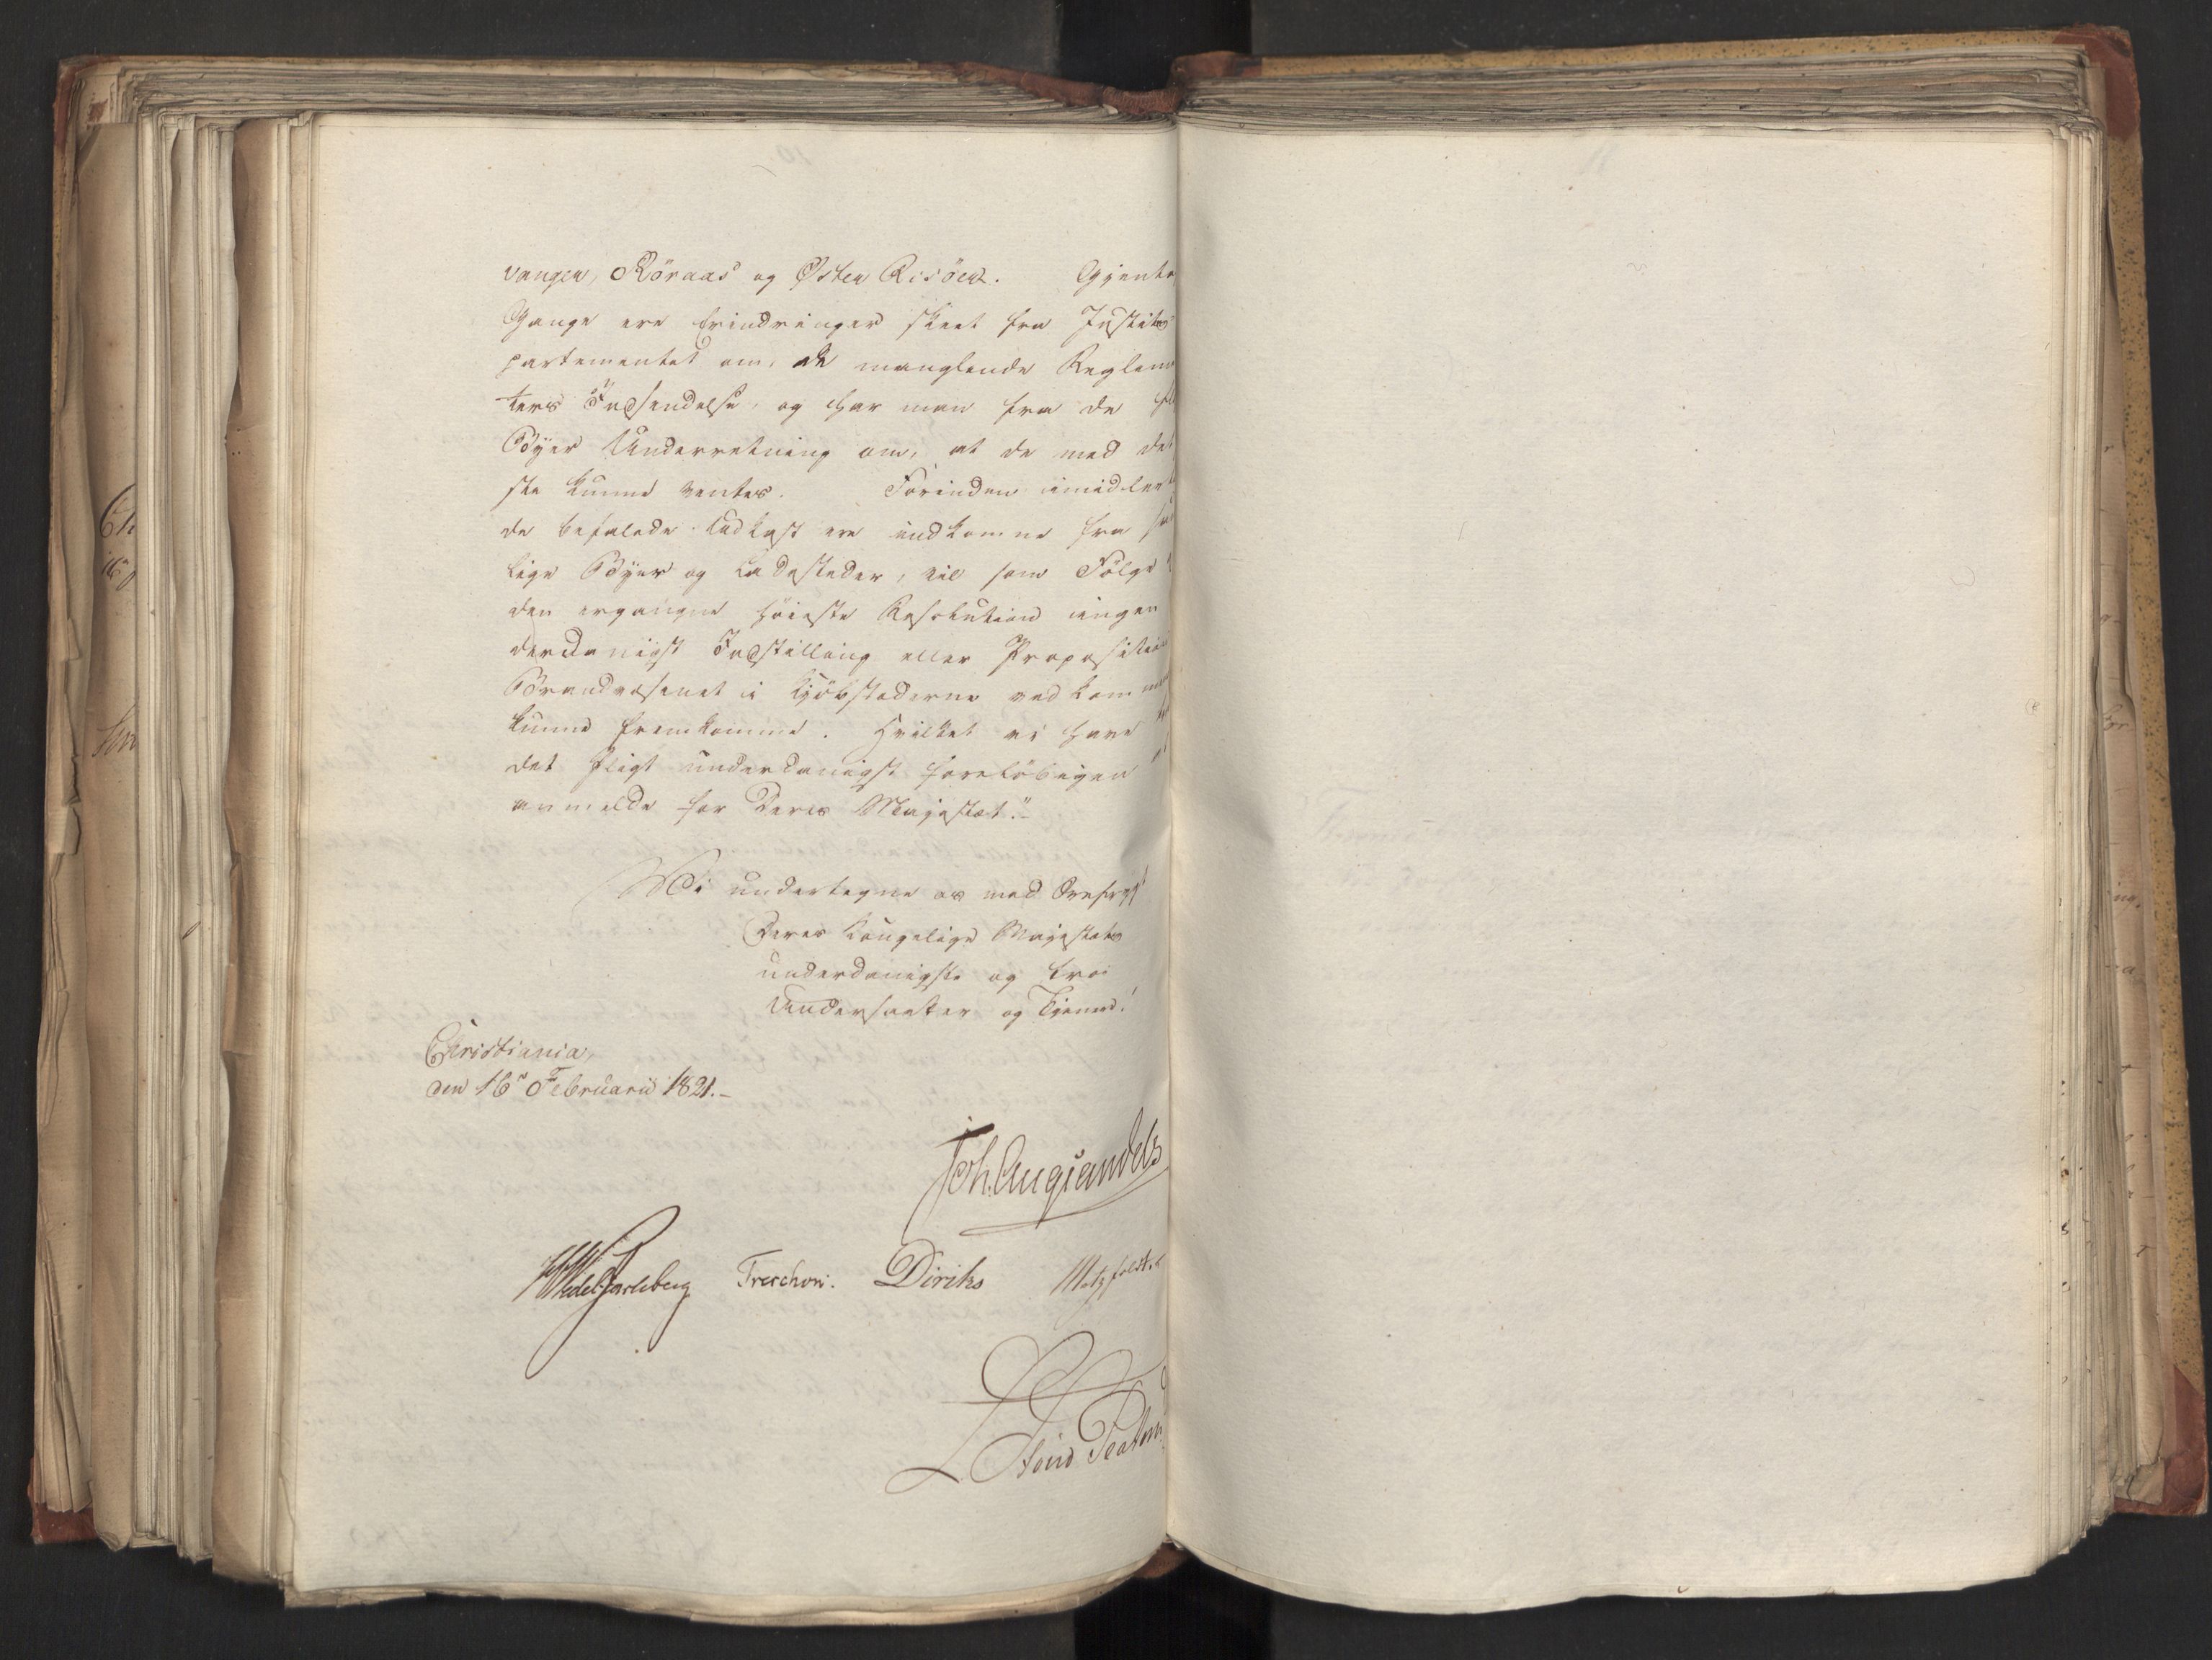 vangen, Röraas og Öster Risöer. Gjenta
Gange ere Erindringer skeet fra Justits
partementet om, de manglende Reglem
ters Indsendelse, og har man fra de
Byer Underretning om, at de med det
ste kunne ventes. Forinden imidler
de befalede Udkast ere indkomne fra
lige Byer og Ladesteder, vil som Fölge
den ergangne höieste Resolution ingen
derdanigst Indstilling eller Proposition
Brandvæsenet i Kjöbstæderne vedkomme
kunne fremkomme. Hvilket vi have
det pligt underdanigst foreløbigen
anmelde for Deres Majestæt."-
Vi undertegne os med Ærefrygt
Deres Kongelige Majestæts
underdanigste og troe
Undersaatter og Tjenere.
Christiania,
den 16de Februarii 1821.-
Joh. Aug: Sandels
Wedel Jarlsberg Treschow. Diriks Motzfeldt